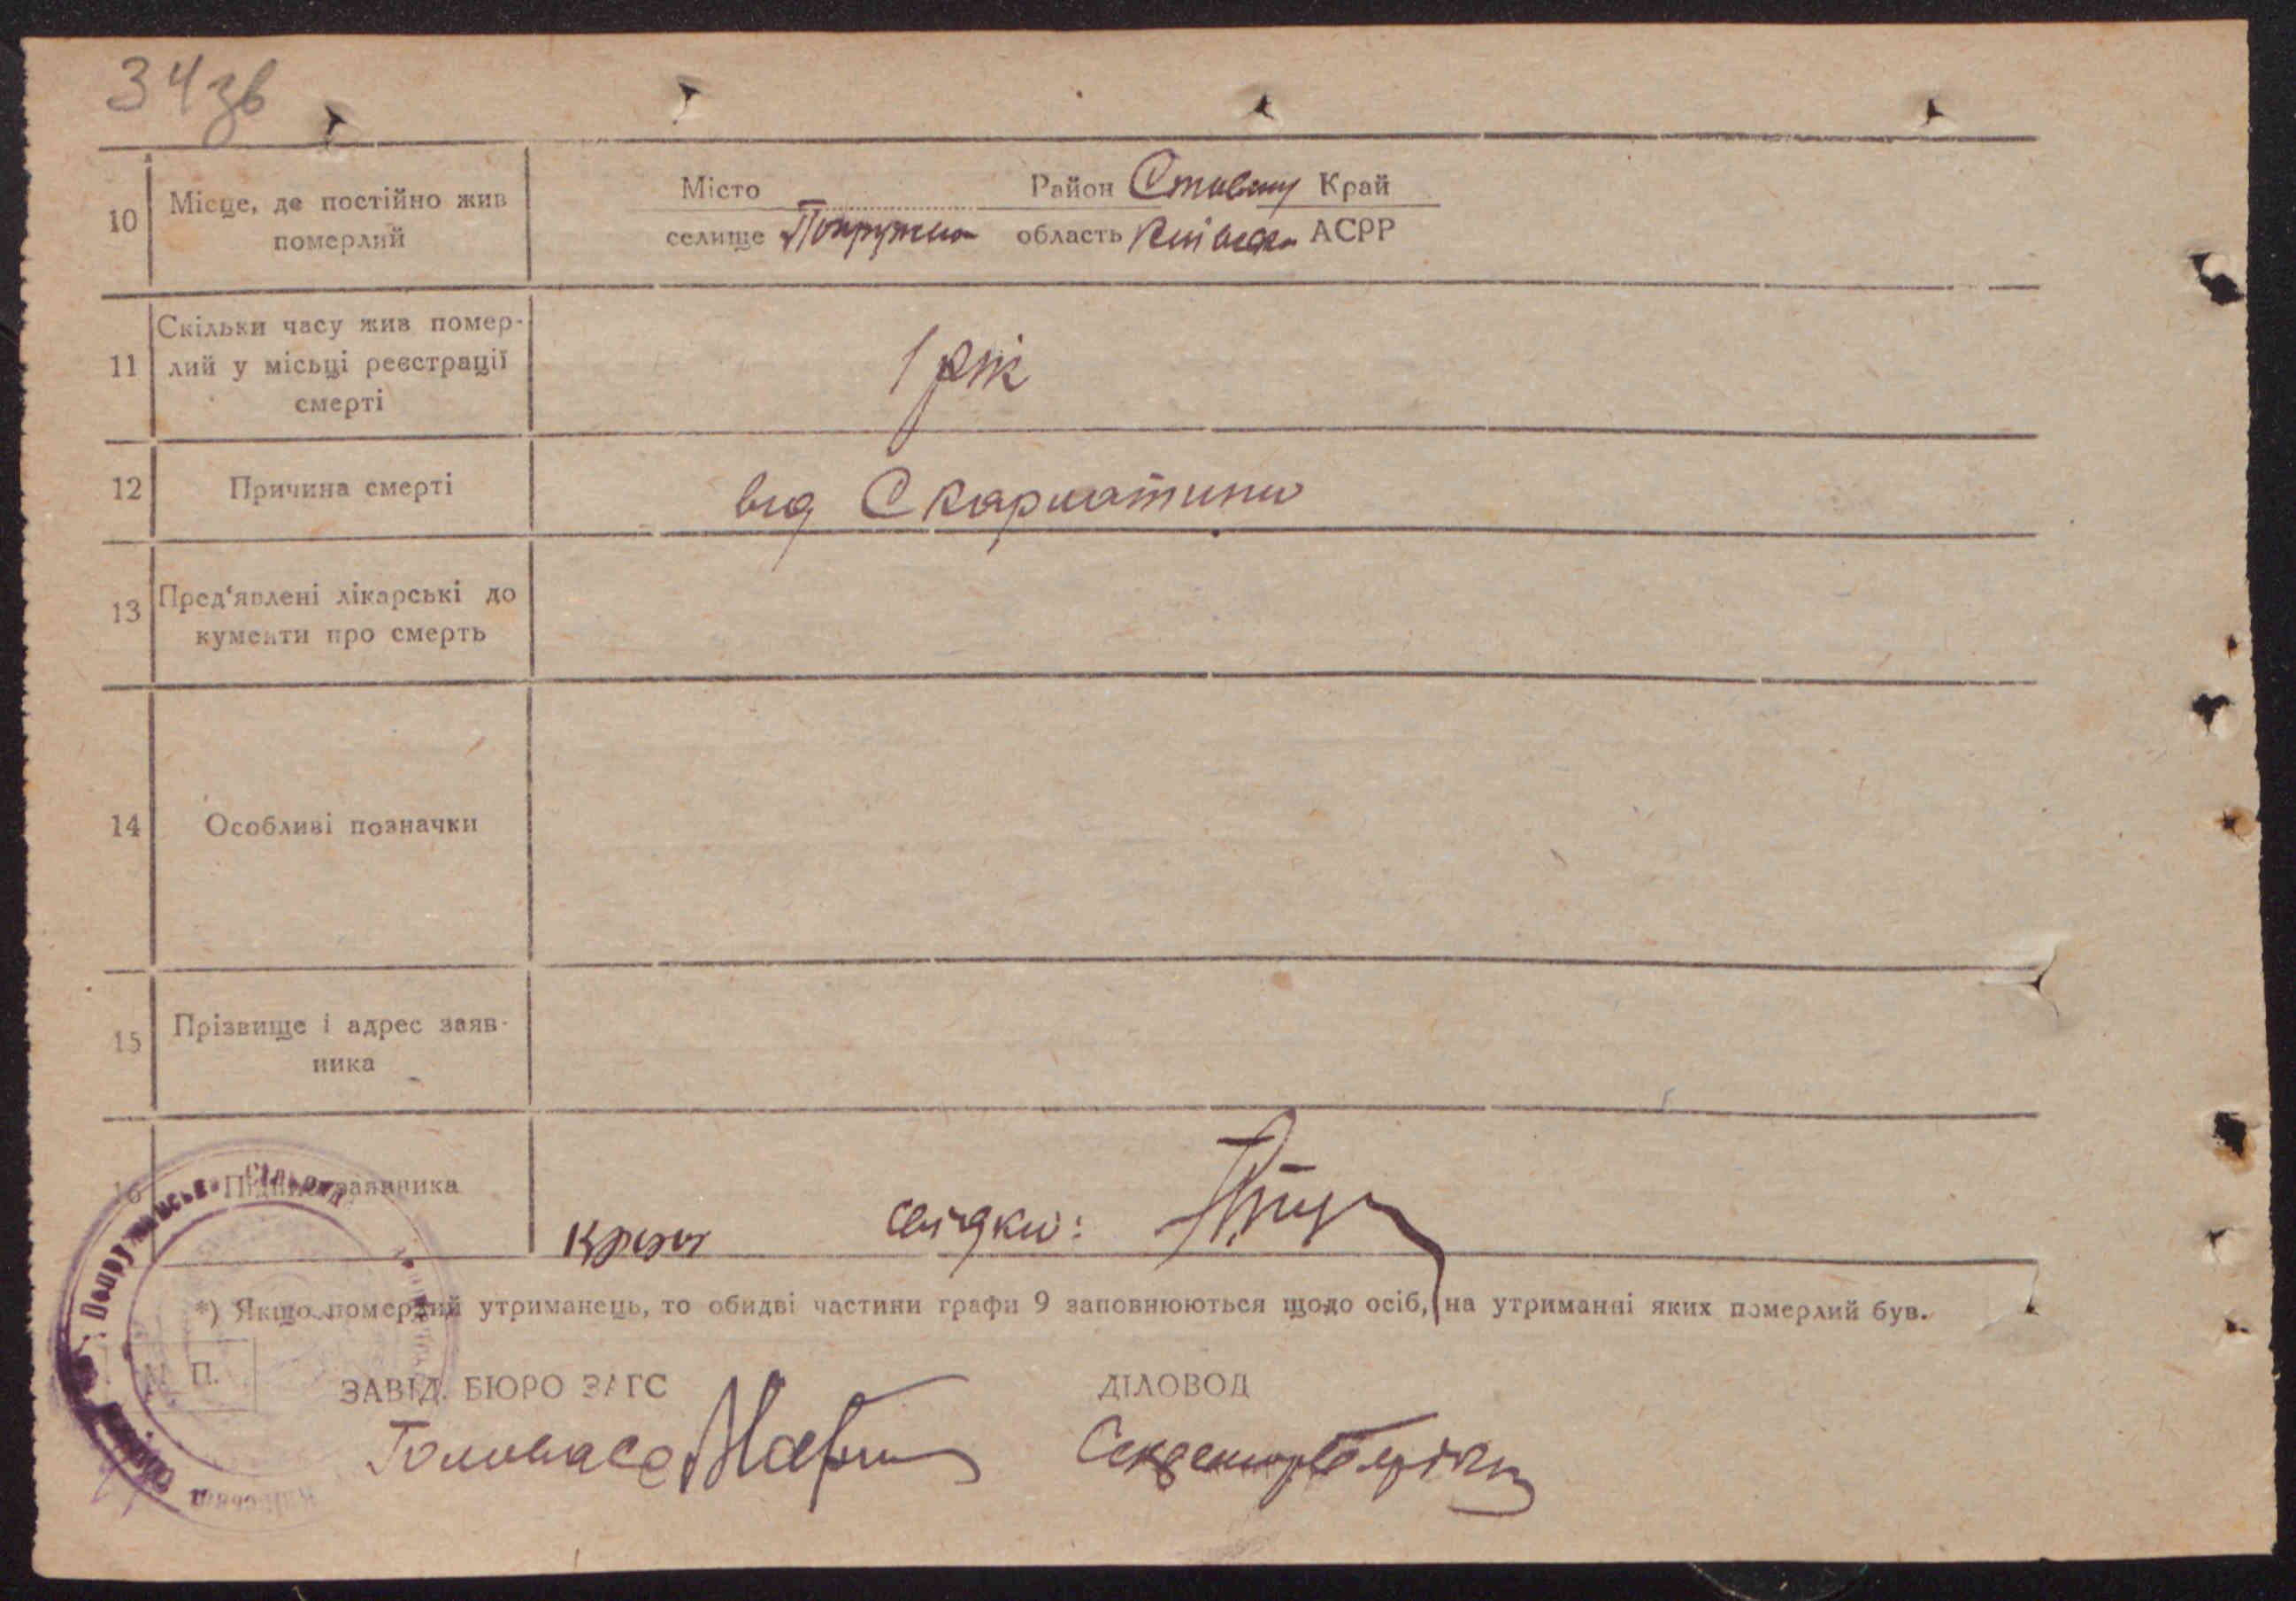 34 зв
10 Місце, де постійно жив Місто Район Ставищ Край
померлий селище Попружна область Київська АСРР
Скільки часу жив помер-
11 лий у місьці реєстрації 1 рік
смерті
12 Причина смерті від Скарлатини
13 Пред'явлені лікарські до
кументи про смерть
14 Особливі позначки
15 Прізвище і адрес заяв-
ника
16 Підпис заявника
свідки:
*) Якщо померлий утриманець, то обидві частини графи 9 заповнюються щодо осіб, на утриманні яких померлий був.
М. П.
ЗАВІД. БЮРО ЗАГС ДІЛОВОД
Голова с/р Секретар